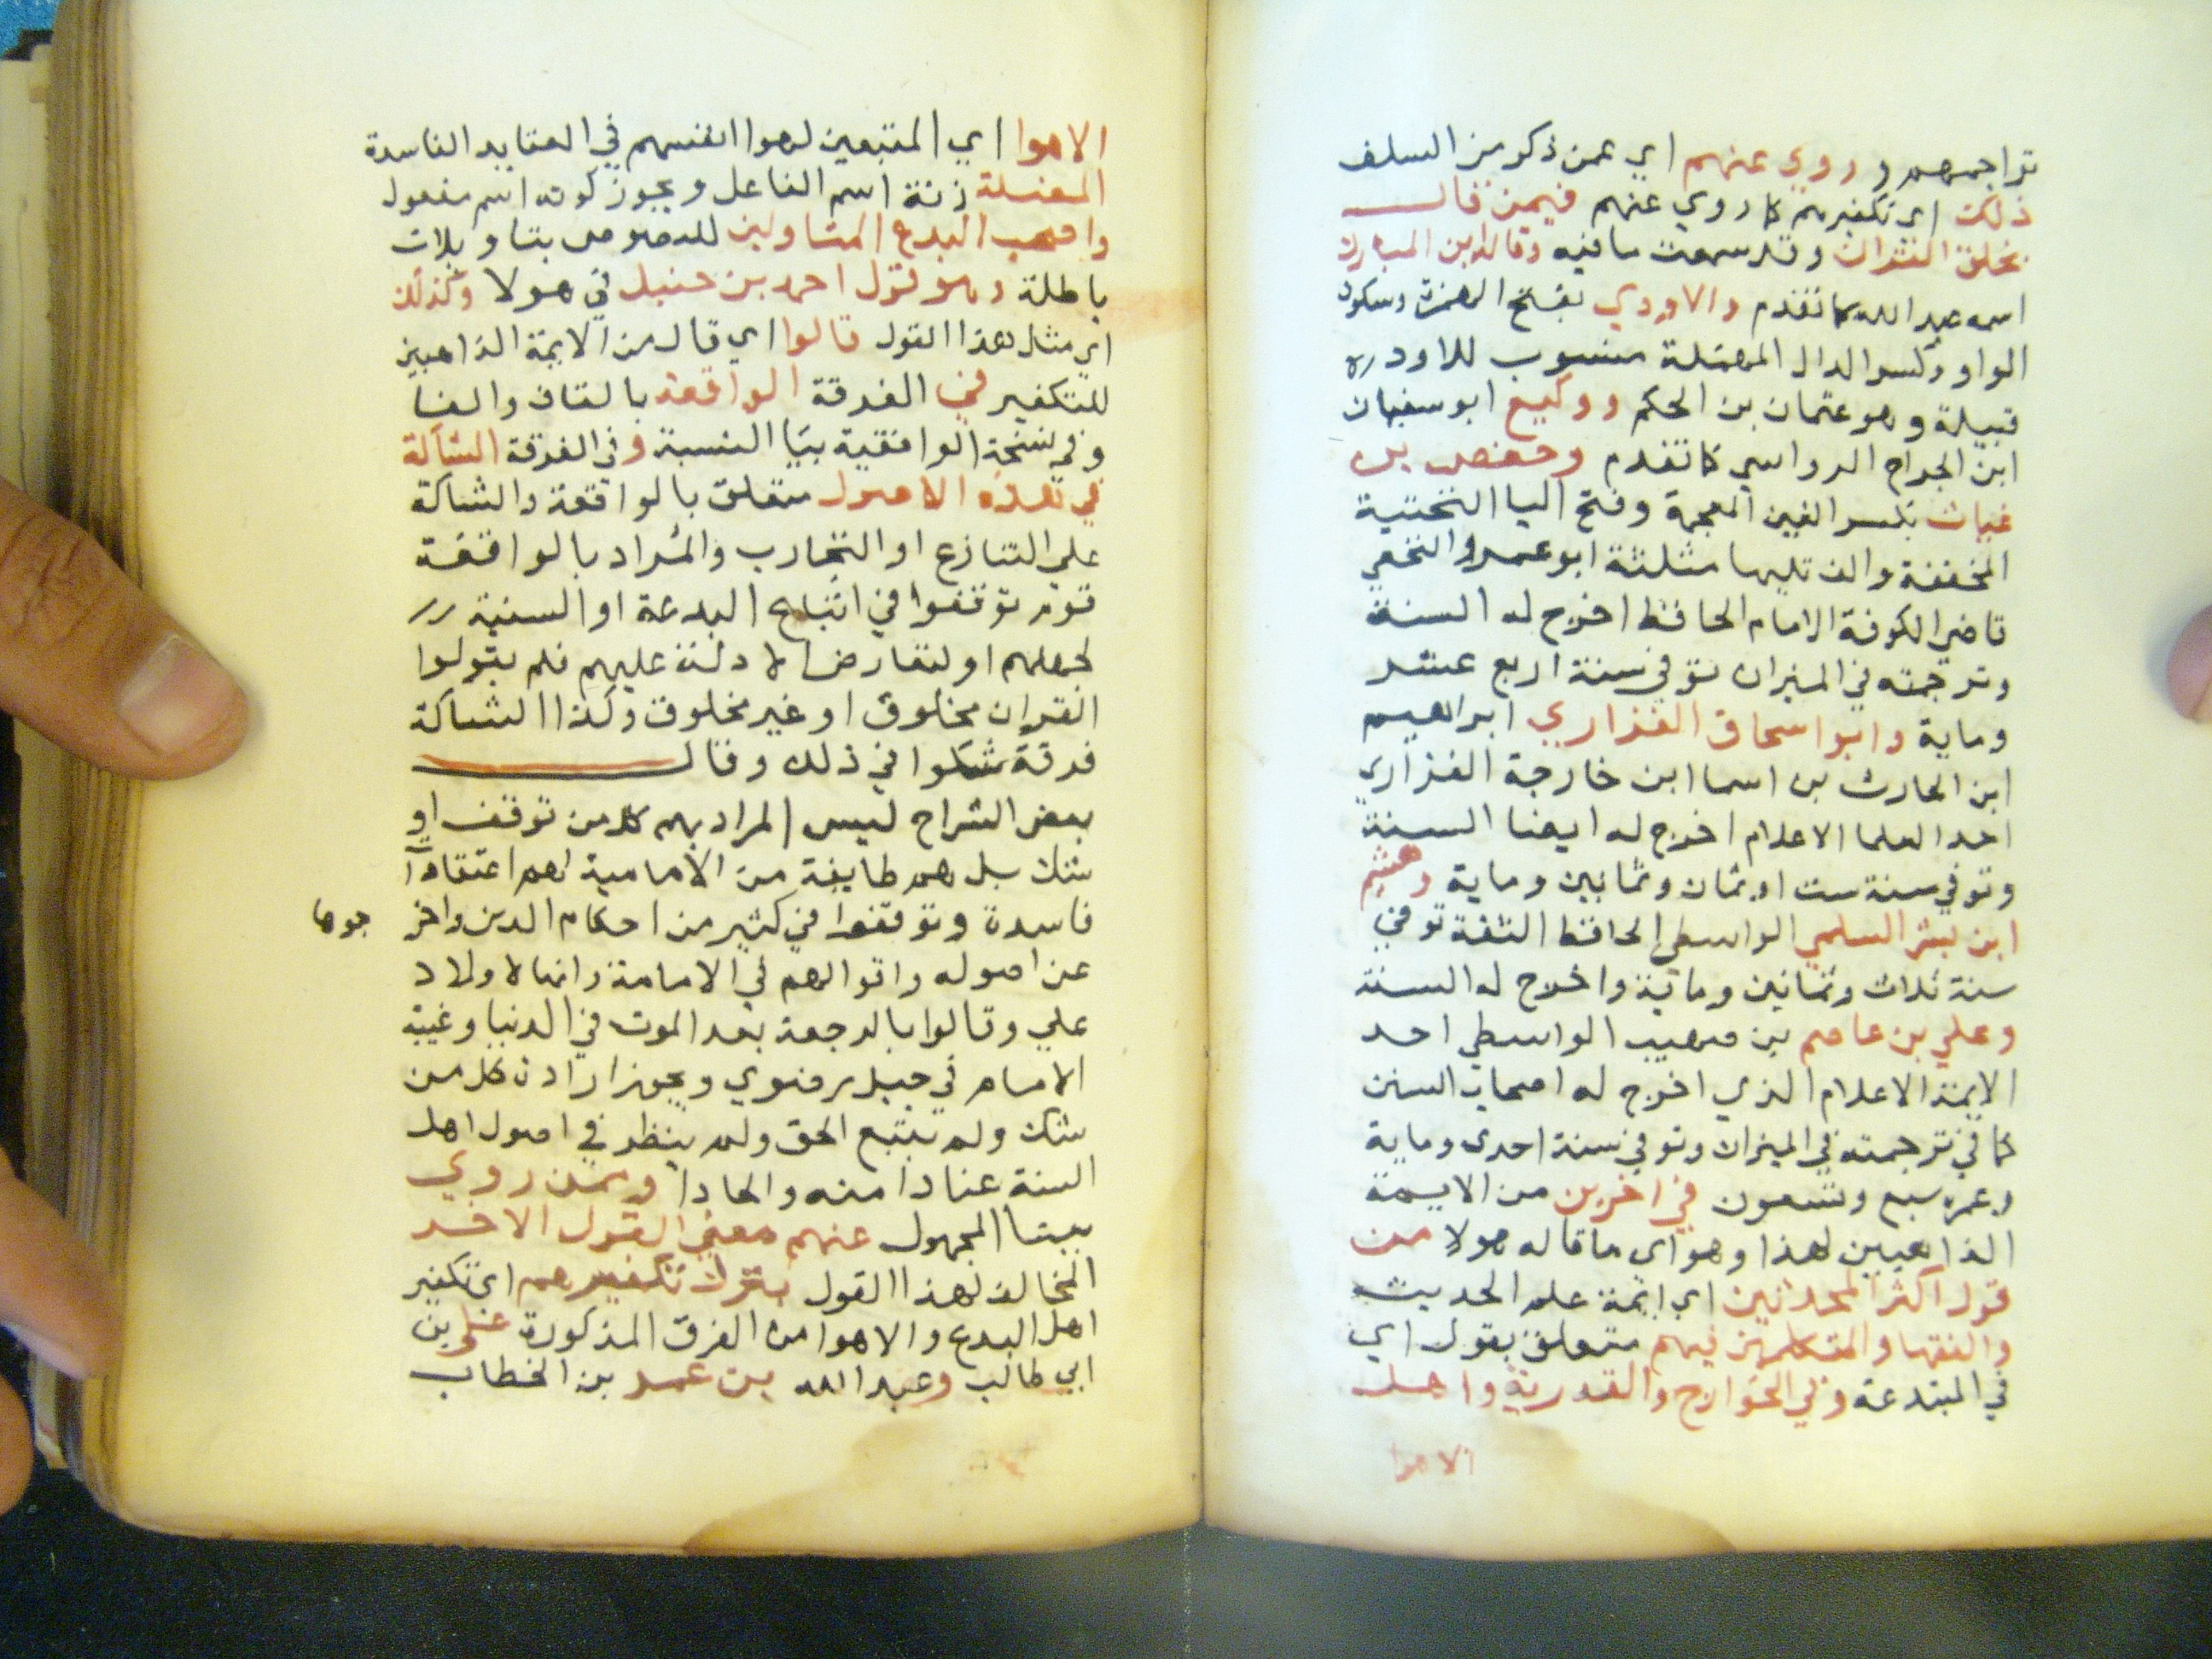 تراجمهم و روي عنهم اي عمن ذكر من السلف
ذلك اي تكفيرهم كما روي عنهم فيمن قال
بخلق القران وقد سمعت ما فيه وقاله ابن المبارك
اسمه عبد الله كما تقدم والاودي بفتح الهمزة وسكون
الواو وكسر الدال المهملة منسوب للاود
قبيلة وهو عثمان بن الحكم ووكيع ابو سفيان
ابن الجراح الرواسي كما تقدم وحفص بن
غياث بكسر الغين المعجمة وفتح اليا التحتية
المخففة والف تليها مثلثة ابو عمرو النخعي
قاضي الكوفة الامام الحافظ اخرج له الستة
وترجمته في الميزان توفي سنة اربع عشر
وماية وابو اسحاق الفزاري ابراهيم
ابن الحارث بن اسما ابن خارجة الفزاري
احد العلما الاعلام اخرج له ايضا الستة
وتوفي سنة ست او ثمان وثمانين وماية وهشيم
ابن بشر السلمي الواسطي الحافظ الثقة توفي
سنة ثلاث وثمانين وماية واخرج له الستة
وعلي بن عاصم بن صهيب الواسطي احد
الايمة الاعلام الذي اخرج له اصحاب السنن
كما في ترجمته في الميزان وتوفي سنة احدى وماية
وعمره سبع وتسعون في اخرين من الايمة
الذاهبين لهذا وهو اى ما قاله هولا من
قول اكثر المحدثين اي ايمة علم الحديث
والفقها والمتكلمين فيهم متعلق بقول اي
في المبتدعة وفي الخوارج والقدرية واهل
الاهوا
الاهوا اي المتبعين لهوا انفسهم في العقايد الفاسدة
المضلة زنة اسم الفاعل ويجوز كونه اسم مفعول
واصحب البدع المتاولين للنصوص بتاويلات
باطلة وهو قول احمد بن حنبل في هولا وكذلك
اي مثل هذا القول قالوا اي قال من الايمة الذاهبين
للتكفير في الفرقة الواقفة بالقاف والفا
وفي نسخة الواقفية بيا النسبة و في الفرقة الشاكة
في هذه الاصول متعلق بالواقفة والشاكة
على التنازع او التجارب والمراد بالواقفة
قوم توقفوا في اتباع البدعة او السنية
لجهلهم او لتعارض الادلة عليهم فلم يقولوا
القران مخلوق او غير مخلوق وكذا الشاكة
فرقة شكوا في ذلك وقال
بعض الشراح ليس المراد بهم كل من توقف او
شك بل هم طايفة من الامامية لهم اعتقادا
فاسدة وتوقفوا في كثير من احكام الدين واخر جوها
عن اصوله واقوالهم في الامامة وانها لاولاد
علي وقالوا بالرجعة بعد الموت في الدنيا وغيبة
الامام في جبل رضوي ويجوز ارادة كل من
شك ولم يتبع الحق ولم ينظر في اصول اهل
السنة عنادا منه والحادا وممن روي
ببنا المجهول عنهم معنى القول الاخر
المخالف لهذا القول بترك تكفيرهم اى تكفير
اهل البدع والاهوا من الفرق المذكورة علي بن
ابي طالب وعبد الله بن عمر بن الخطاب